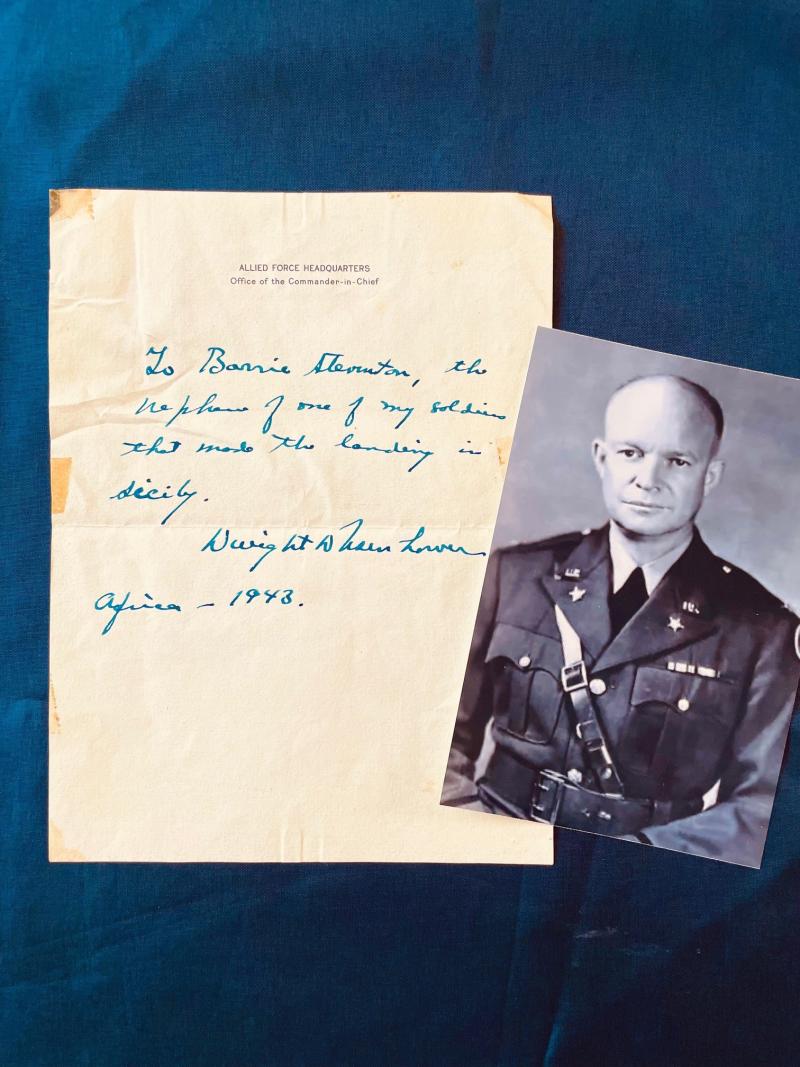 ALLIED FORCE HEADQUARTERS
Office of the Commander-in-Chief
To Barrie Stevinton, the
nephew of one of my soldiers
that made the landing in
Sicily.
Dwight D Eisenhower
Africa – 1943.
U.S.